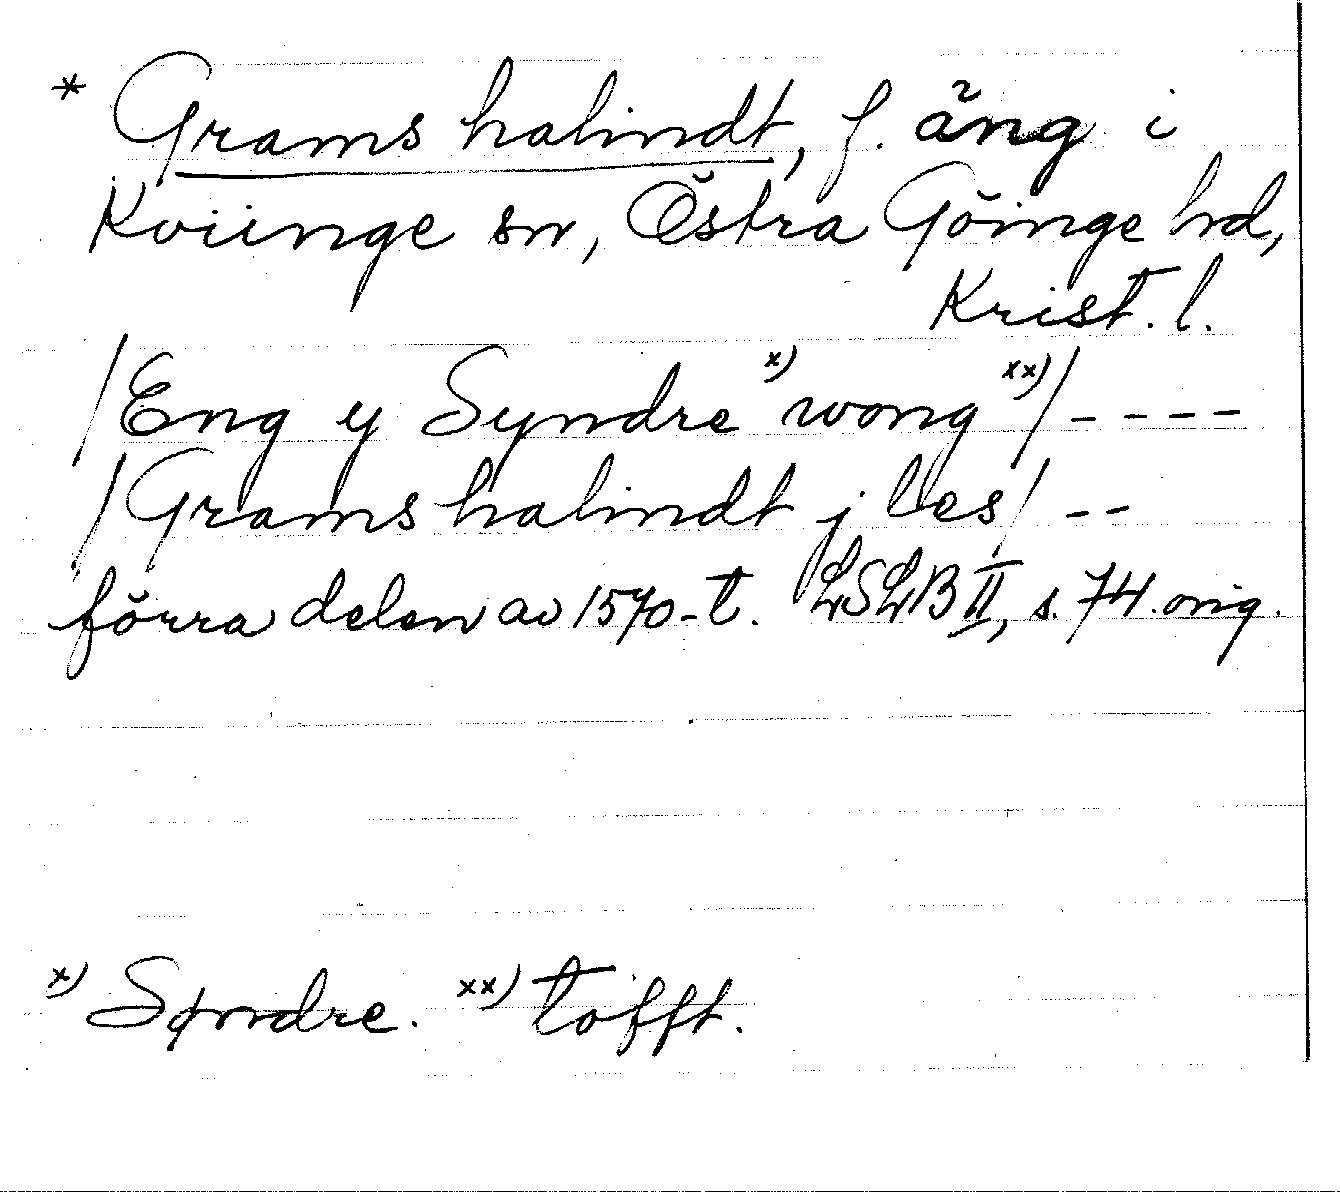 * Grams halindt, f. äng i
Kviinge sn, Östra Göinge hd,
Krist. l.
/Eng y Syndre x) wong xx)/ - - - -
/Grams halindt j les/ - -
förra delen av 1570-t. LSLB II, s. 74. orig.
x) Syndre. xx) tofft.